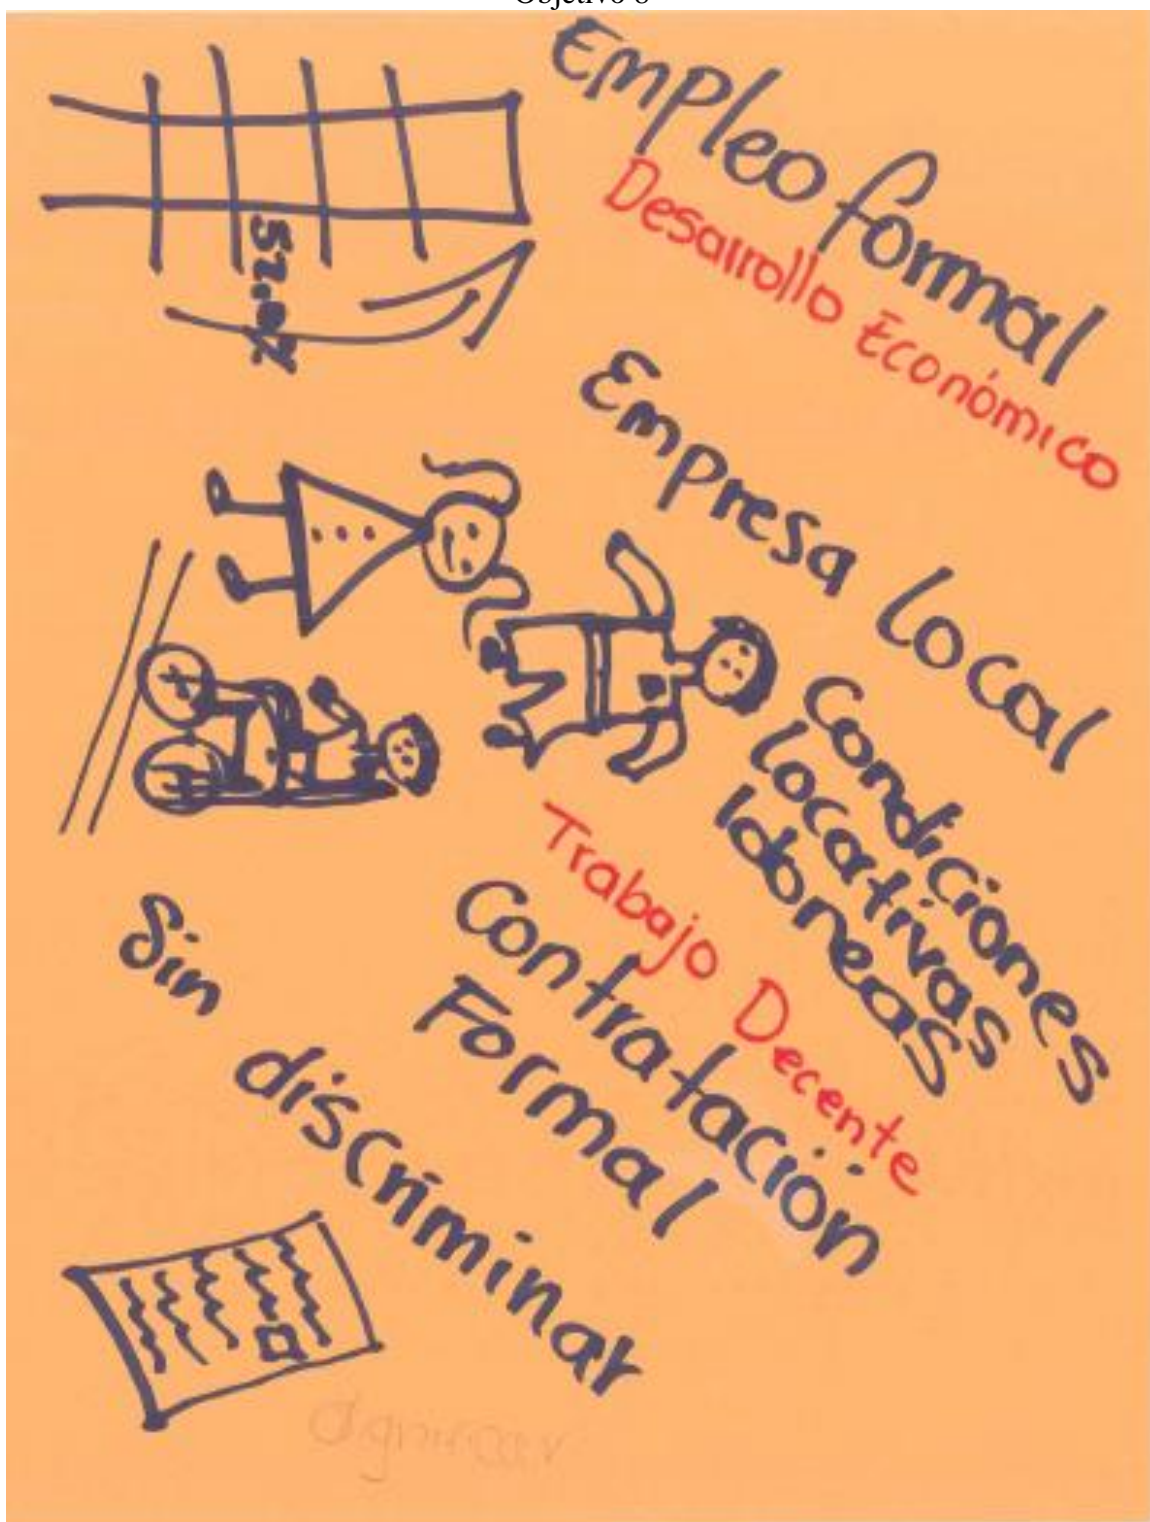 Objetivo 8
Empleo formal
Desarrollo Económico
Empresa local
Condiciones
locativas
idoneas
Trabajo Decente
Contratación
Formal
Sin discriminar